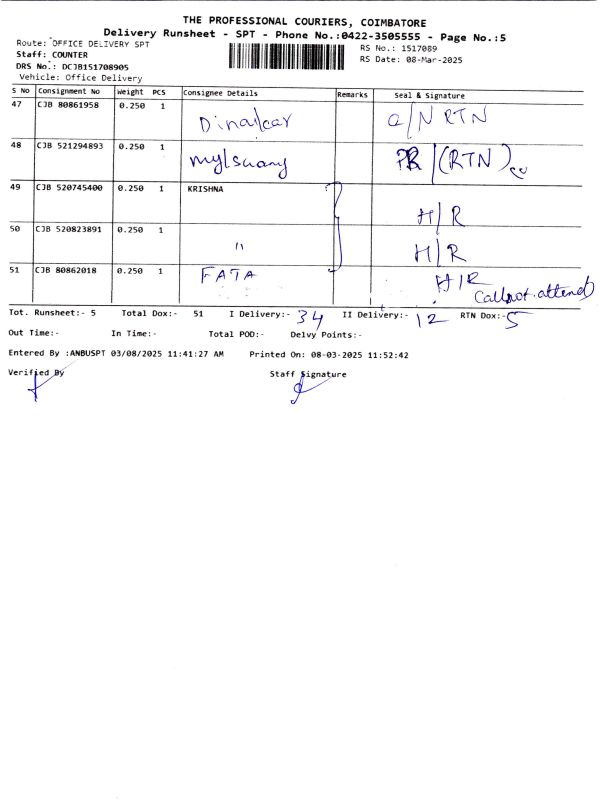 THE PROFESSIONAL COURIERS, COIMBATORE
Delivery Runsheet - SPT - Phone No.:0422-3505555 - Page No.:5
Route: OFFICE DELIVERY SPT
Staff: COUNTER
DRS No.: DCJB151708905
Vehicle: Office Delivery
RS No.: 1517089
RS Date: 08-Mar-2025
S No Consignment No Weight PCS Consignee Details Remarks Seal & Signature
47 CJB 80861958 0.250 1 Dinakar C/N RTN
48 CJB 521294893 0.250 1 (RTN)
49 CJB 520745400 0.250 1 KRISHNA H/R
50 CJB 520823891 0.250 1 " H/R
51 CJB 80862018 0.250 1 FATA H/R
Call not attend
Tot. Runsheet:- 5 Total Dox:- 51 I Delivery:- 34 II Delivery:- 12 RTN Dox:- 5
Out Time:- In Time:- Total POD:- Delvy Points:-
Entered By :ANBUSPT 03/08/2025 11:41:27 AM Printed On: 08-03-2025 11:52:42
Verified By Staff Signature